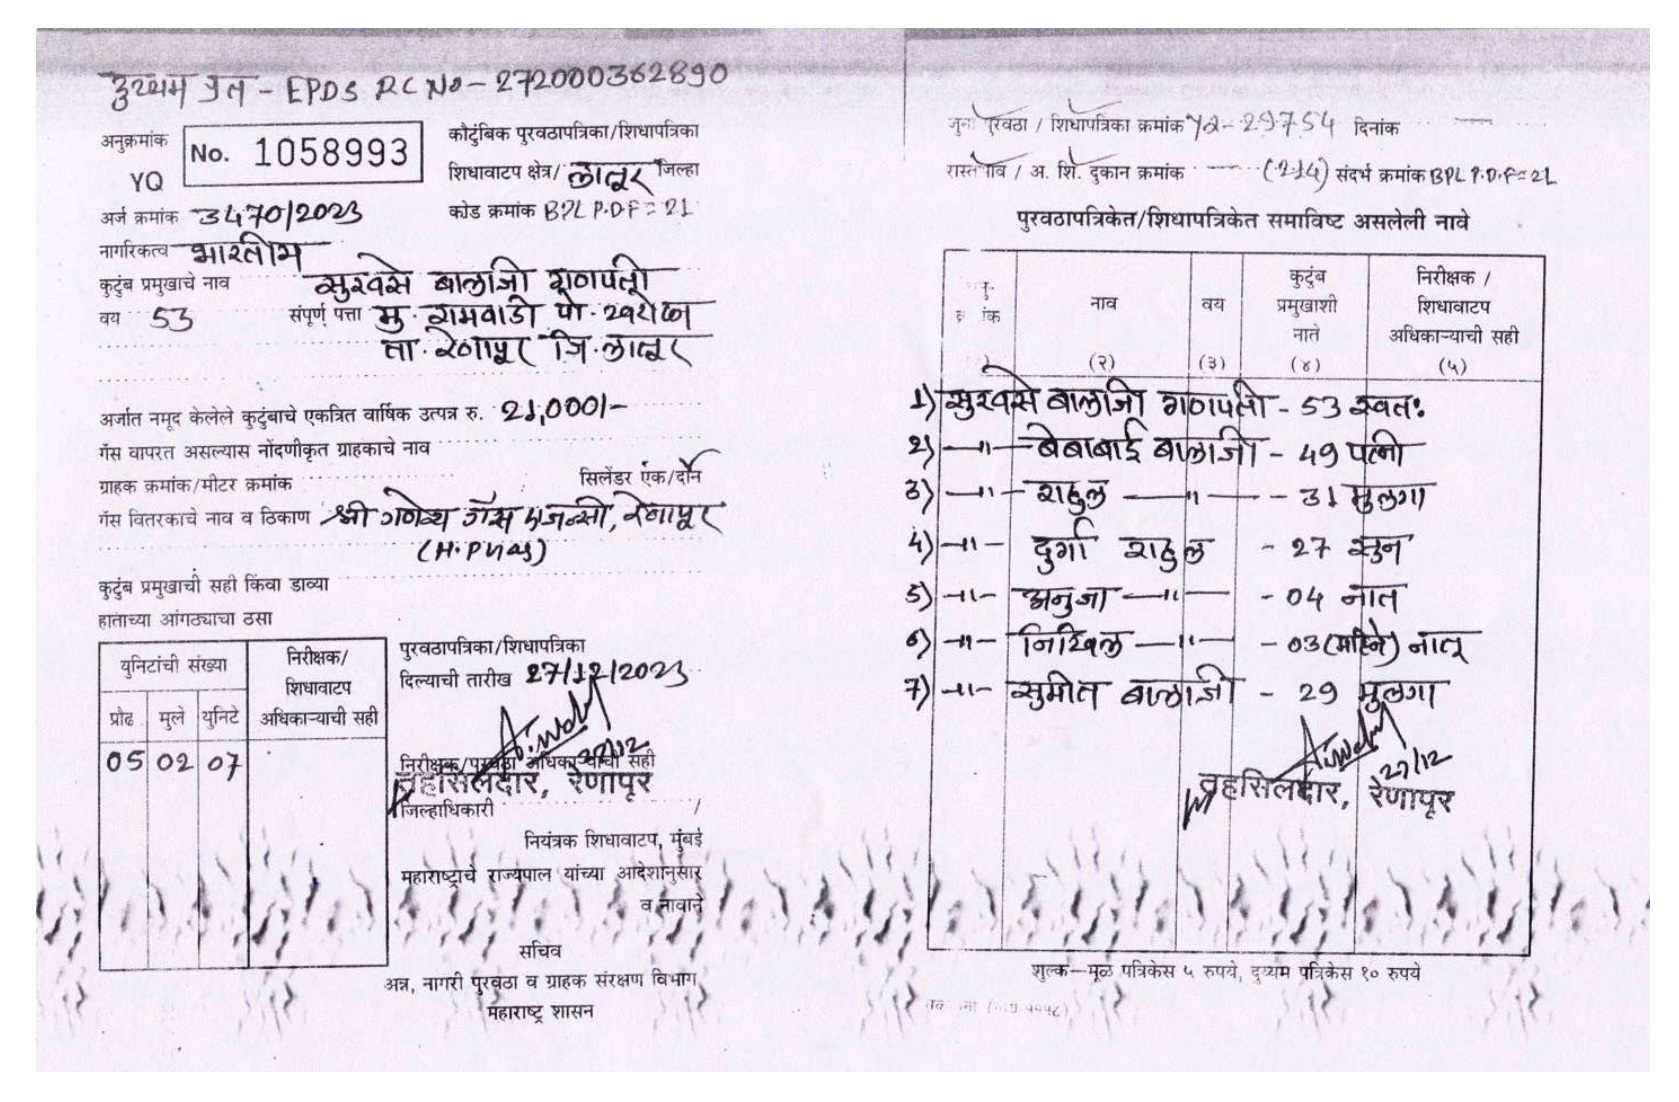 दुय्यम प्रत - EPDS RC No - 272000362890
अनुक्रमांक
YQ
No. 1058993
कौटुंबिक पुरवठापत्रिका/शिधापत्रिका
शिधावाटप क्षेत्र/ लातूर जिल्हा
अर्ज क्रमांक 3470/2023
कोड क्रमांक BPL P.D.F = 21
नागरिकत्व भारतीय
कुटुंब प्रमुखाचे नाव सुरवसे बालाजी गणपती
वय 53 संपूर्ण पत्ता मु. रामवाडी पो. खरोळा
ता. रेणापूर जि. लातूर
अर्जात नमूद केलेले कुटुंबाचे एकत्रित वार्षिक उत्पन्न रु. 21,000/-
गॅस वापरत असल्यास नोंदणीकृत ग्राहकाचे नाव
ग्राहक क्रमांक/मीटर क्रमांक सिलेंडर एक/दोन
गॅस वितरकाचे नाव व ठिकाण श्री गणेश गॅस एजन्सी, रेणापूर
कुटुंब प्रमुखाची सही किंवा डाव्या
हाताच्या आंगठ्याचा ठसा
युनिटांची संख्या
निरीक्षक/
शिधावाटप
अधिकाऱ्याची सही
प्रौढ मुले युनिटे
05 02 07
पुरवठापत्रिका/शिधापत्रिका
दिल्याची तारीख 27/12/2023
27/12
निरीक्षक/पुरवठा अधिकाऱ्याची सही
तहसिलदार, रेणापूर
जिल्हाधिकारी
नियंत्रक शिधावाटप, मुंबई
महाराष्ट्राचे राज्यपाल यांच्या आदेशानुसार
व नावाने
सचिव
अन्न, नागरी पुरवठा व ग्राहक संरक्षण विभाग
महाराष्ट्र शासन
जुना पुरवठा / शिधापत्रिका क्रमांक 29754 दिनांक
रास्तभाव / अ. शि. दुकान क्रमांक (214) संदर्भ क्रमांक BPL P.D.F = 21
पुरवठापत्रिकेत/शिधापत्रिकेत समाविष्ट असलेली नावे
नाव
वय
कुटुंब
प्रमुखाशी
नाते
निरीक्षक /
शिधावाटप
अधिकाऱ्याची सही
(२) (३) (४) (५)
1) सुरवसे बालाजी गणपती - 53 स्वतः
2) —"— बेबाबाई बालाजी - 49 पत्नी
3) —"— राहुल —"— - 31 मुलगा
4) —"— दुर्गा राहुल - 27 सुन
5) —"— अनुजा —"— - 04 नात
6) —"— निखिल —"— - 03 (महिने) नातू
7) —"— सुमीत बालाजी - 29 मुलगा
27/12
तहसिलदार, रेणापूर
शुल्क—मूळ पत्रिकेस ५ रुपये, दुय्यम पत्रिकेस १० रुपये